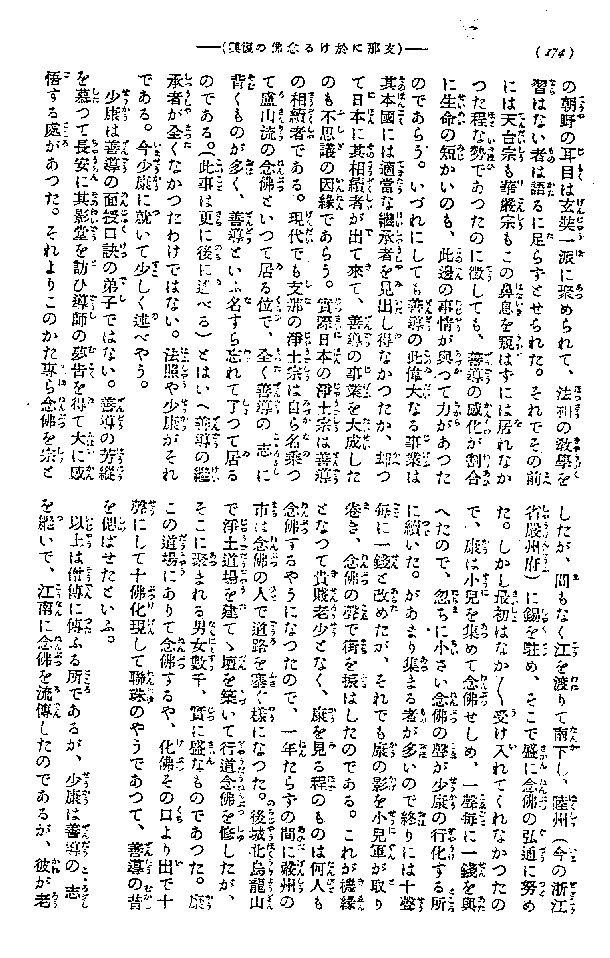 (174)
―(支那に於ける念佛の復興)―
の朝野の耳目は玄奘一派に聚められて、法相の敎學を
習はない者は語るに足らずとせられた。それでその前
には天台宗も華嚴宗もこの鼻息を窺はずには居れなか
つた程な勢であつたのに徴しても、善導の感化が割合
に生命の短かいのも、此邊の事情が與つて力があつた
のであらう。いづれにしても善導の此偉大なる事業は
其本國には適當な繼承者を見出し得なかつたか、却つ
て日本に其相續者が出て來て、善導の事業を大成した
のも不思議の因緣であらう。實際日本の淨土宗は善導
の相續者である。現代でも支那の淨土宗は自ら名乘つ
て廬山流の念佛といつて居る位で、全く善導の志に
背くものが多く、善導といふ名すら忘れて了つて居る
のである。(此事は更に後に述べる)とはいへ善導の繼
承者が全くなかつたわけではない。法照や少康がそれ
である。今少康に就いて少しく述べやう。
少康は善導の面授口訣の弟子ではない。善導の芳縱
を慕つて長安に其影堂を訪ひ導師の夢告を得て大に感
悟する處があつた。それよりこのかた專ら念佛を宗と
したが、間もなく江を渡りて南下し、睦州(今の浙江
省嚴州府)に錫を駐め、そこで盛に念佛の弘通に努め
た。しかし最初はなか〱受け入れてくれなかつたの
で、康は小兒を集めて念佛せしめ、一聲每に一錢を與
へたので、忽ちに小さい念佛の聲が少康の行化する所
に續いた。があまり集まる者が多いので終りには十聲
每に一錢と改めたが、それでも康の影を小兒軍が取り
卷き、念佛の聲で街を振はしたのである。これが機緣
となつて貴賤老少となく、康を見る程のものは何人も
念佛するやうになつたので、一年たらずの間に嚴州の
市は念佛の人で道路を塞ぐ樣になつた。後城北烏龍山
で淨土道場を建てゝ壇を築いて行道念佛を修したが、
そこに聚まれる男女數千、實に盛なものであつた。康
この道場にありて念佛するや、化佛その口より出で十
聲にして十佛化現して聯珠のやうであつて、善導の昔
を偲ばせたといふ。
以上は僧傳に傳ふる所であるが、少康は善導の志
を繼いで、江南に念佛を流傳したのであるが、彼が老